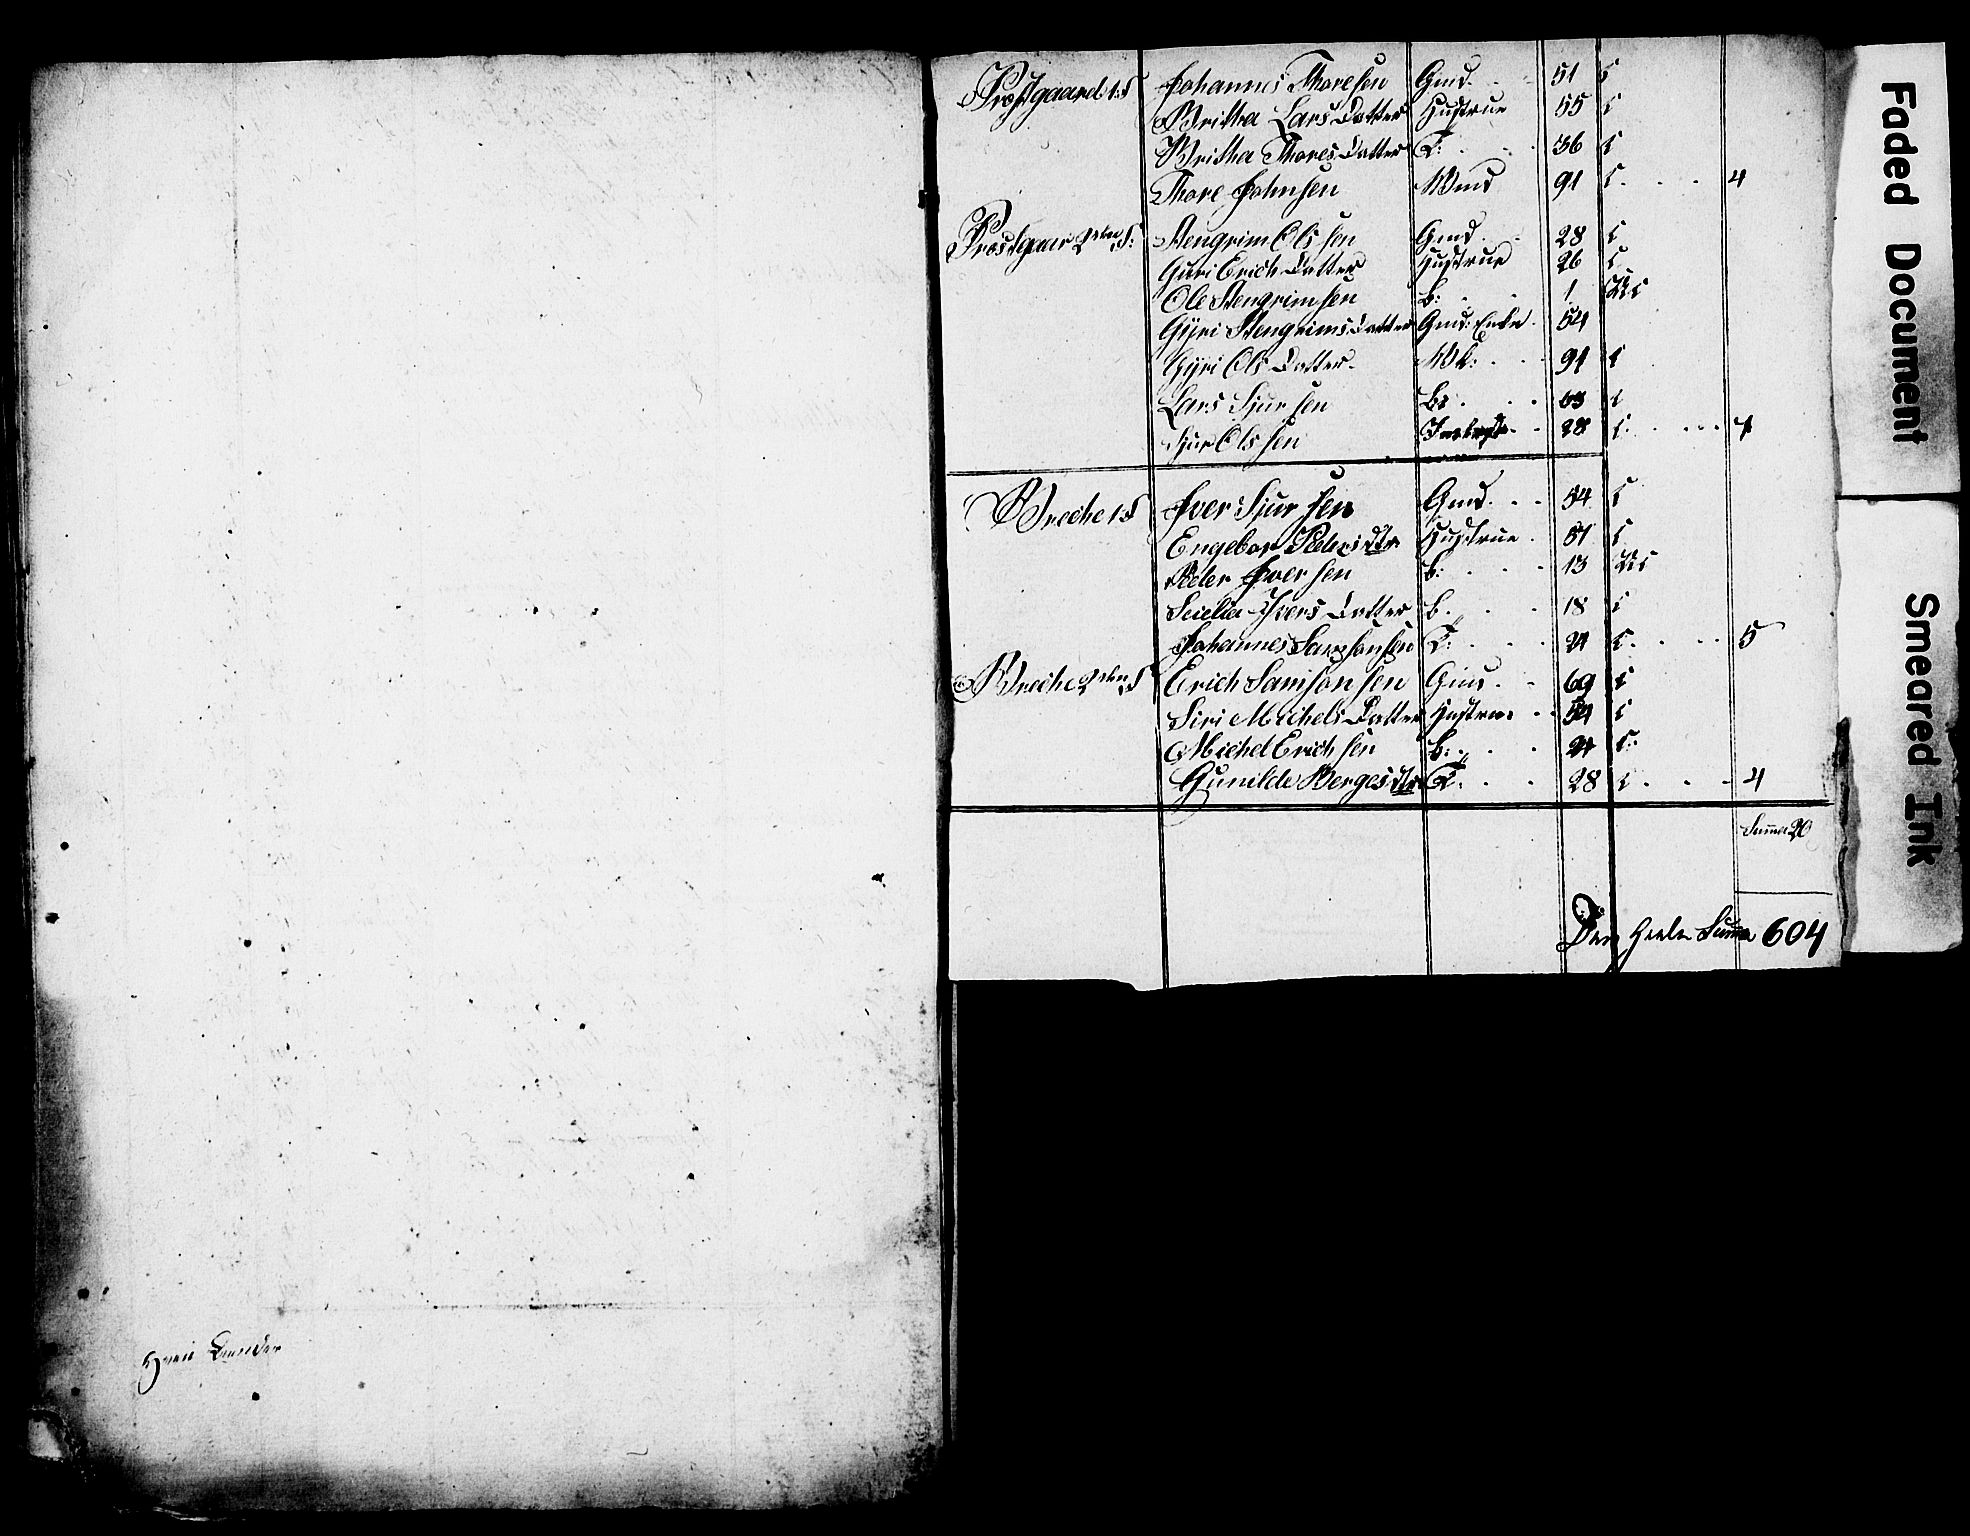 Prostgaard 1: S Johannes Thoresen Gmd. 51 C
Britha Lars Datter Hustrue 55 C
Britha Thores Datter T: 36 C
Thore Johnsen 91 C. 4
Prostgaar 2den S: Stengrim Ols sen Gmd 28 C
Guri Erich Datter Hustrue 26 C
Ole Stengrimsen b: 1 UC
Gyri Stengrims Datter Gmd: Enke. 54
Gyri Ols Datter. 91 C
Lars Sjur sen 63 C
Sjur Ols sen 28 C: 4
Breche 1 S Iver Sjur sen Gmd. 54 C
Engebor Peders dtr Hustrue. 51 C
Peder Iver sen b: 13 UC
Scielia Ivers Datter b. 18 C
Johannes Samson sen T: 21 C. 5
Breche 2den S Erich Samson sen Gmd. 69 C
Siri Michels Datter Hustrue 54 C
Michel Erich sen b: 21 C:
Gunilde Berges dtr T. 28 C 4
Summa 20
Den Heele Summa 604
Faded Document
Smeared Ink